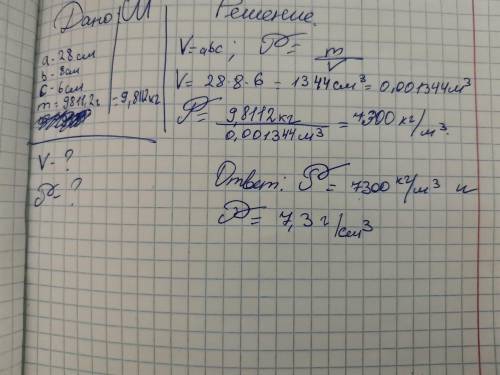 Дано М Решение
a - 28 см
b - 8 см
c - 6 см
m = 9811,2 г = 9,8112 кг
V - ?
P - ?
V = abc; P = m/V
V = 28 · 8 · 6 = 1344 см³ = 0,001344 м³
P = 9,8112 кг / 0,001344 м³ = 7300 кг/м³.
Ответ: P = 7300 кг/м³ и
P = 7,3 г/см³